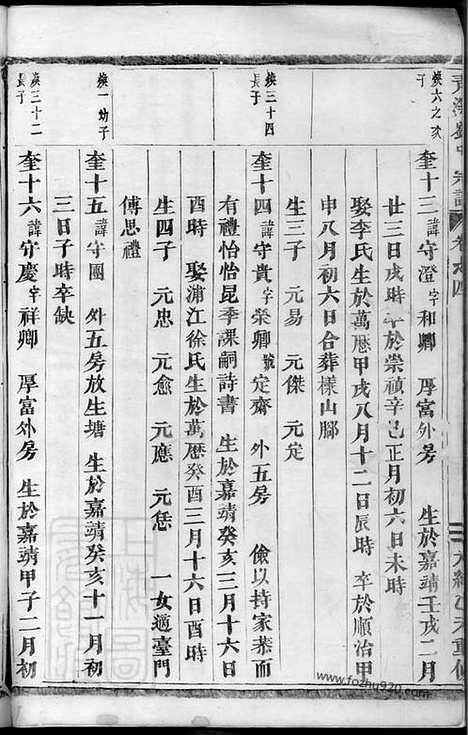 煥六之次
子
奎十三諱守澄字和卿 厚富外房 生於嘉靖壬戌二月
廿三日戌時卒於崇禎辛巳正月初六日未時
娶李氏生於萬厯甲戌八月十二日辰時 卒於順治甲
申八月初六日合葬樣山腳
生三子 元易 元傑 元定
煥三十四
長子
奎十四諱守貴字榮卿號定齋 外五房 儉以持家恭而
有禮怡怡昆季課嗣詩書 生於嘉靖癸亥三月十六日
酉時 娶浦江徐氏生於萬厯癸酉三月十六日酉時
生四子 元忠 元愈 元應 元恁 一女適臺門
傅思禮
煥一幼子
奎十五諱守國 外五房放生塘 生於嘉靖癸亥十一月初
三日子時卒缺
煥三十二
長子
奎十六諱守慶字祥卿 厚富外房 生於嘉靖甲子二月初
www.fozhu920.com